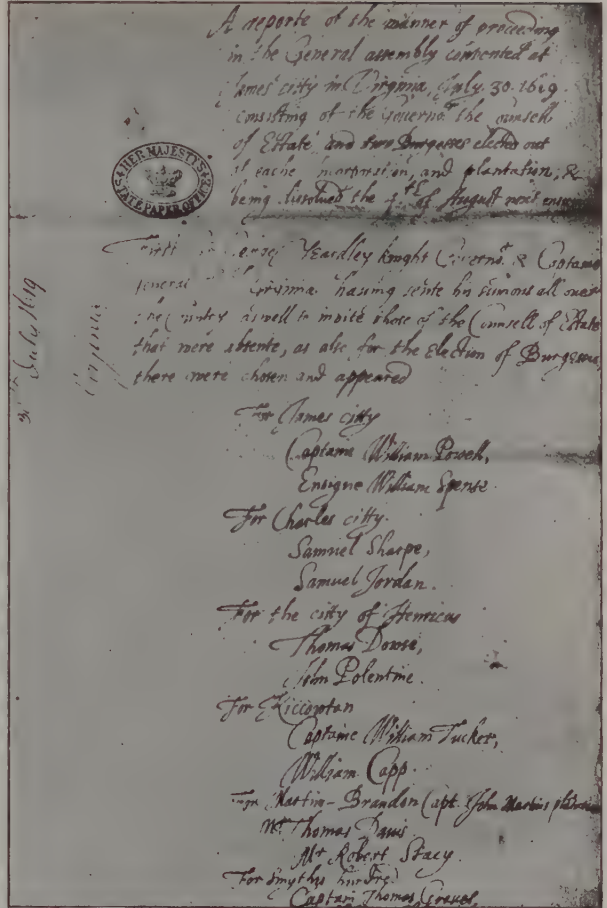 A reporte of the manner of proceeding
in the General assembly convented at
James citty in Virginia, July. 30. 1619.
consisting of the Governor, the Counsell
of Estate and two Burgesses elected out
of eache Incorporation, and plantation, &
being dissolved the 4th of August next
HER MAJESTY'S
STATE PAPER OFFICE
Yeardley knight Governor & Captaine
having sente his sumons all over
the Country aswell to invite those of the Counsell of Estate
that were absente, as also for the Election of Burgesses,
there were chosen and appeared
July 1619
Virginia
For James citty
Captaine William Powell,
Ensigne William Spense.
For Charles citty.
Samuel Sharpe,
Samuel Jordan.
For the citty of Henricus
Thomas Dowse,
John Polentine.
For Kiccowtan
Captaine William Tucker,
William Capp.
For Martin-Brandon Capt. John Martins
Mr Thomas Davis
Mr Robert Stacy.
For Smythes hundred
Captain Thomas Graves,